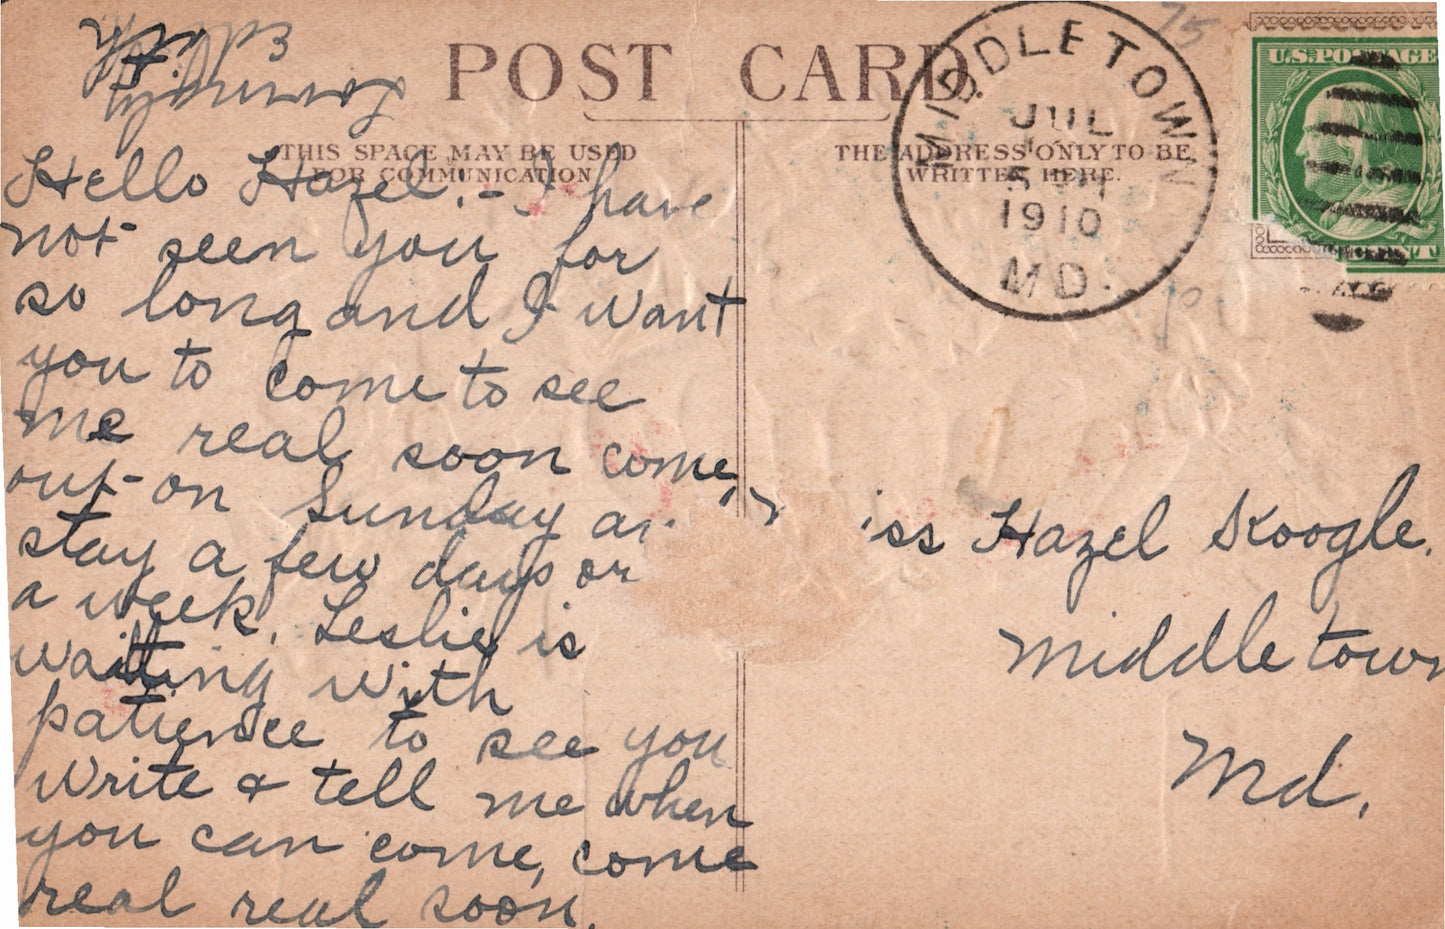 POST CARD
THIS SPACE MAY BE USED
FOR COMMUNICATION
THE ADDRESS ONLY TO BE
WRITTEN HERE.
MIDDLETOWN
JUL
1910
MD.
U.S. POSTAGE
75
Hello Hazel:- I have
not seen you for
so long and I want
you to come to see
me real soon come,
out on Sunday an
stay a few days or
a week. Leslie is
waiting with
patience to see you
Write & tell me when
you can come, come
real real soon.
Lovingly
Edith
Miss Hazel Koogle.
Middletown
Md.